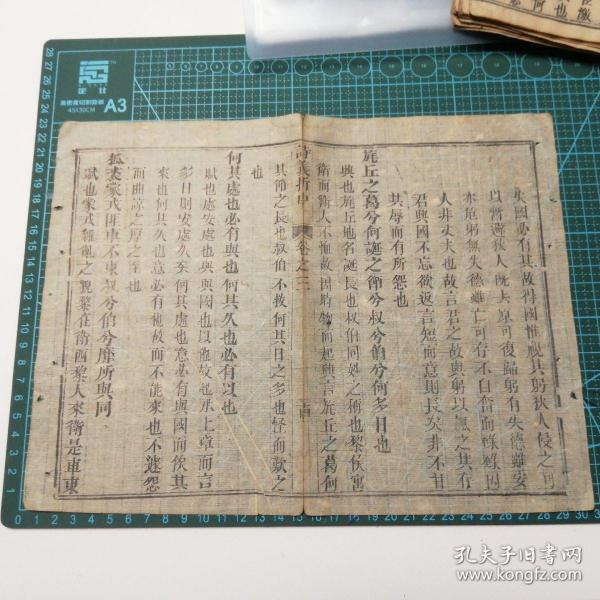 失國必有其故得國惟視其躬狄人侵之可
以暫避狄人既去原可復歸躬有失德雖安
亦危躬無失德雖亡可存不自奮而
人非丈夫也故言君之故與躬以諷之其有
君與國不忘欲返言短而意則長矣非不甘
其辱而有所怨也
旄丘之葛兮何誕之節兮叔兮伯兮何多日也
興也旄丘地名誕長也叔伯同姓之稱也黎侯寓
衛而衛人不恤故因時物而起興言旄丘之葛何
詩義折中
卷之三
其節之長也叔伯不救何其日之多也怪而歎之
也
何其處也必有與也何其久也必有以也
賦也處安處也與與國也以他故也承上章而言
多日則安處久矣何其處也意必有與國而俟其
來也何其久也意必有他故而不能來也不遽怨
而曲諒之厚之至也
狐裘蒙戎匪車不東叔兮伯兮靡所與同
賦也蒙戎雜亂之貌黎在衛西黎人來衛是車東
高密度切割墊板
A3
45X30CM
孔夫子旧书网
www.kongfz.com